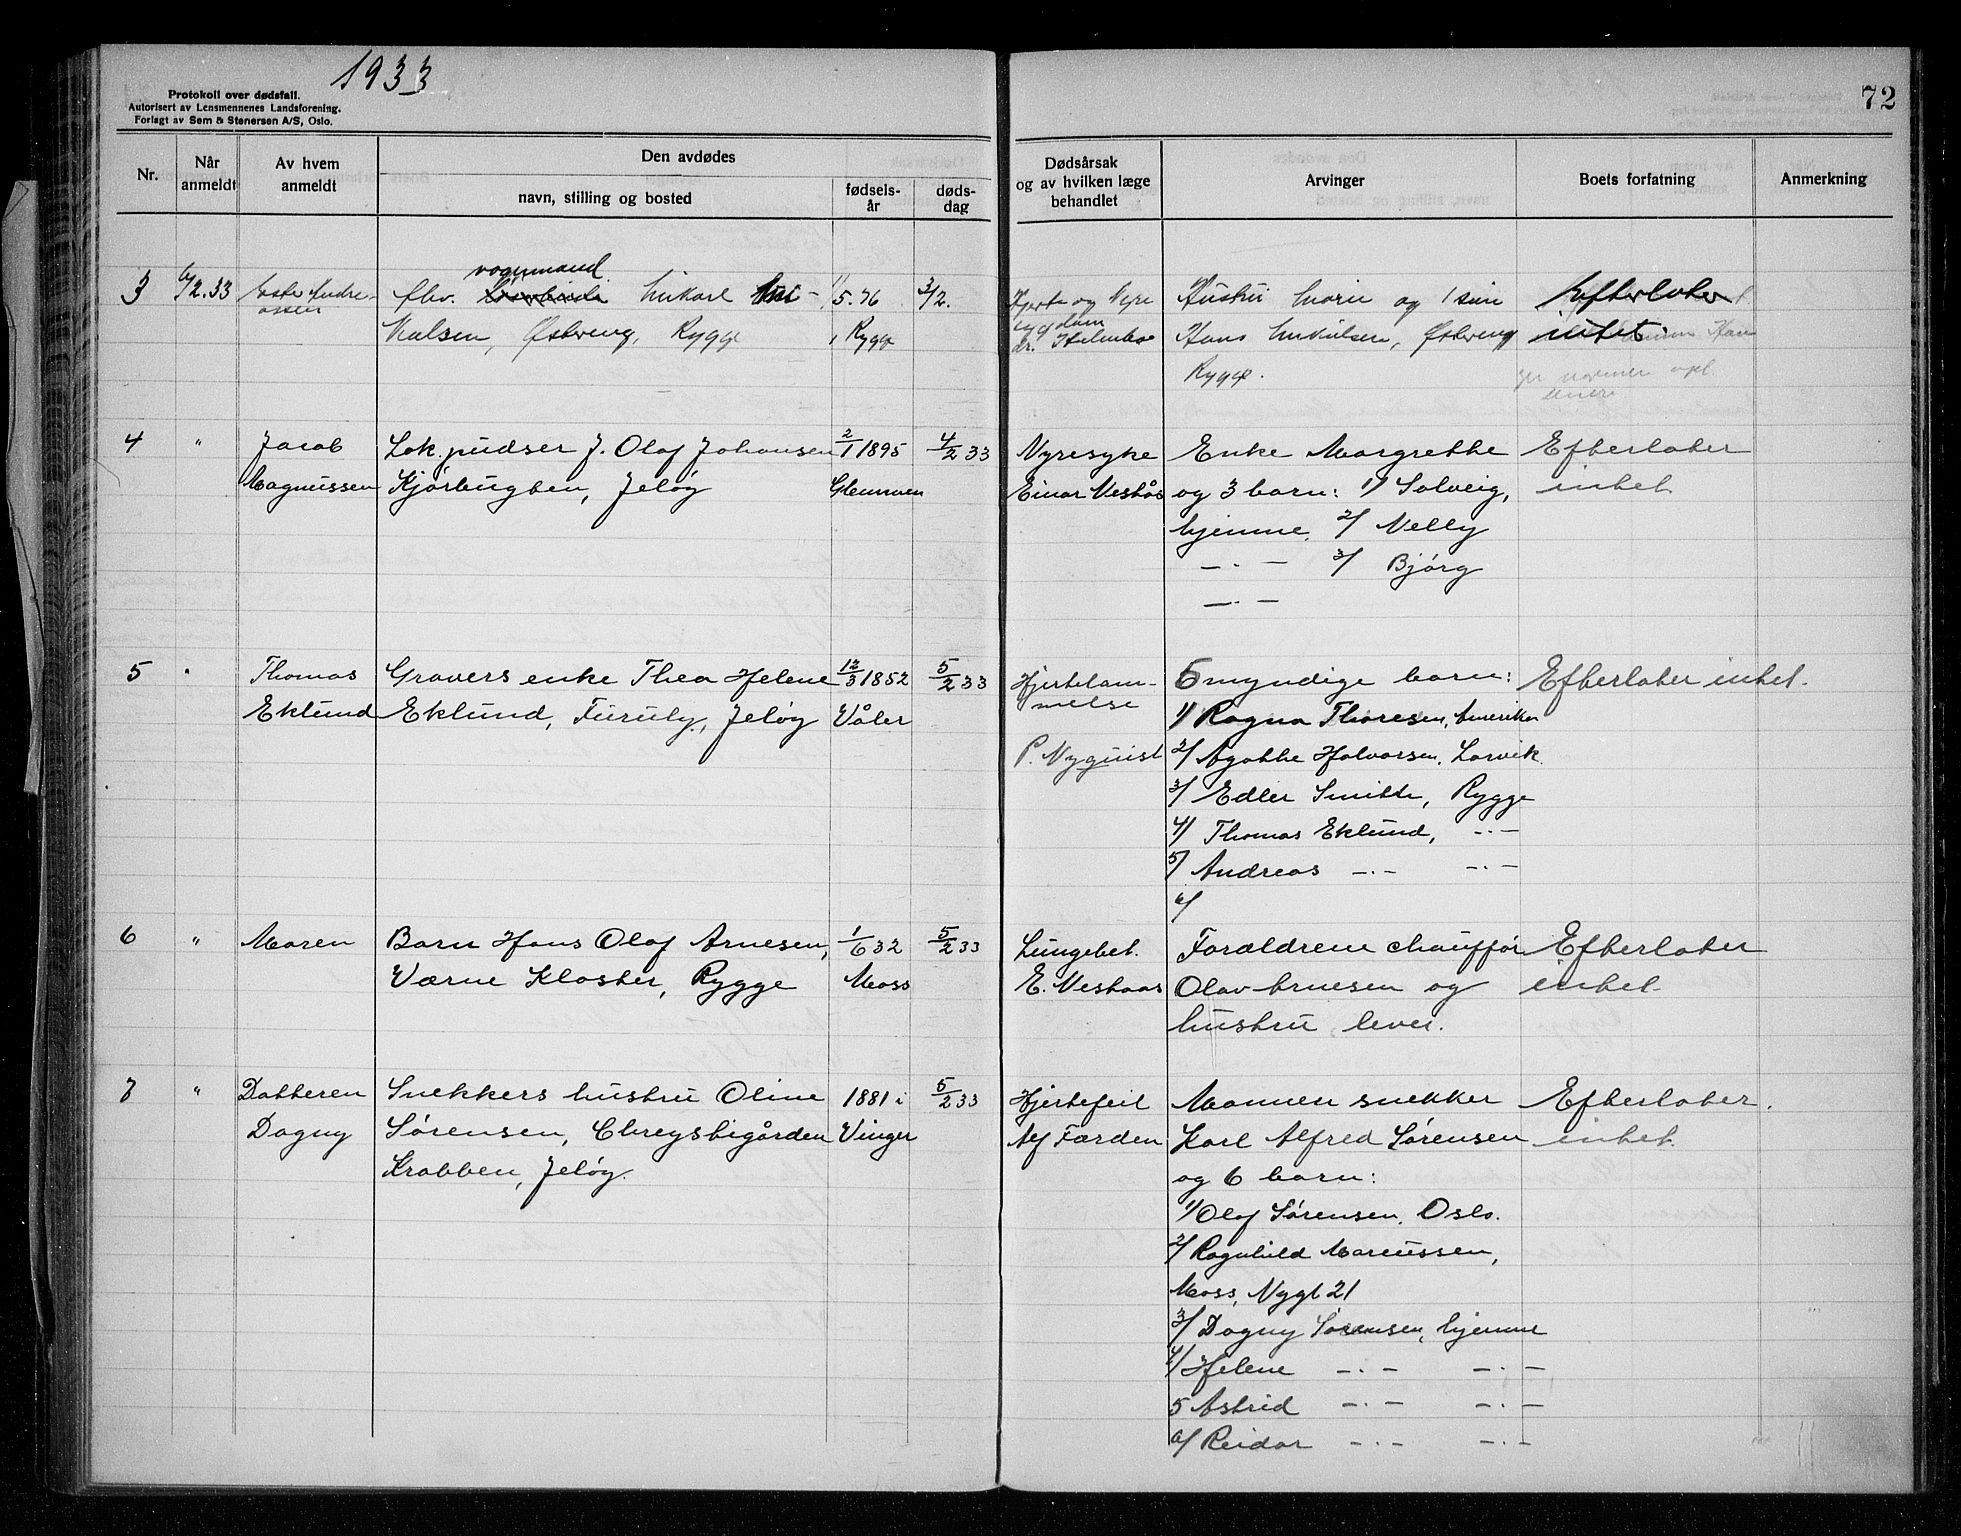 1933
Protokoll over dødsfall.
Autorisert av Lensmennenes Landsforening.
Forlagt av Sem & Stenersen A/S, Oslo.
72
Nr.
Når anmeldt
Av hvem anmeldt
Den avdødes
navn, stilling og bosted
fødsels-år
døds-dag
Dødsårsak og av hvilken læge behandlet
Arvinger
Boets forfatning
Anmerkning
3 6/2.33
vognmand
Rygge
5.76
Rygge
3/2.
Hjerte og Nyre
dr.
Hustru Marie og 1 søn
Hans
Rygge.
Efterlater
intet.
4 "
Jacob
Magnussen
Lok.pudser J. Olaf Johansen
Kjørbugten, Jeløy
2/1 1895
Glemmen
4/2 33
Nyresyke
Einar Vestås
Enke Margrethe
og 3 barn: 1/ Solveig,
hjemme, 2/ Nelly
—.— 3/ Bjørg
—.—
Efterlater
intet
5 "
Thomas
Eklund
Gravers enke Thea Helene
Eklund, Furuly, Jeløy
12/3 1852
Våler
5/2 33
Hjertelam-
melse
P. Nyquist
6 myndige barn:
1/ Ragna Thoresen, Amerika
2/ Agathe Halvorsen, Larvik
3/ Edler Smith, Rygge
4/ Thomas Eklund, —.—
5/ Andreas —.— —.—
6/
Efterlater intet.
6 "
Maren
Barn Hans Olaf Arnesen,
Værne Kloster, Rygge
1/6 32
Moss
5/2 33
Lungebet.
E. Vestaas
Forældrene chauffør
Olav Arnesen og
hustru lever.
Efterlater
intet
7 "
Datteren
Dagny
Snekkers hustru Oline
Sørensen, Chrystigården
Krabben, Jeløy.
1881 i
Vinger
5/2 33
Hjertefeil
Alf Færden
Mannen snekker
Karl Alfred Sørensen
og 6 barn:
1/ Olaf Sørensen, Oslo.
2/ Ragnhild Marcussen,
Moss, Nygt 21
3/ Dagny Sørensen, hjemme
4/ Helene —.— —.—
5 Astrid —.— —.—
6/ Reidar —.— —.—
Efterlater.
intet.